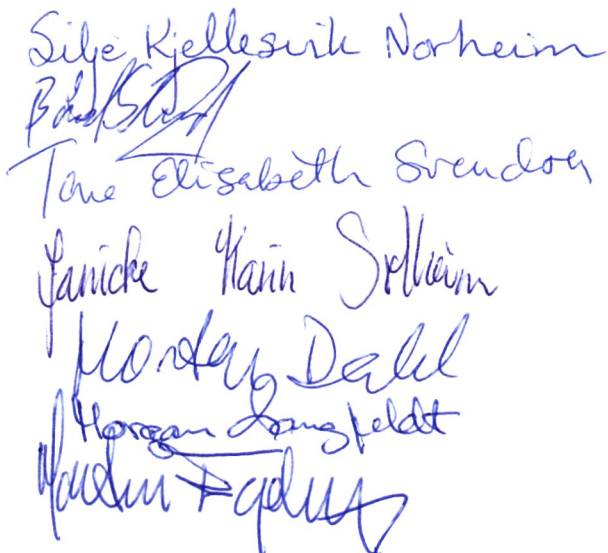 Silje Kjellesvik Norheim
Tone Elisabeth Svendsen
Janicke Karin Solheim
Morten Dahl
Morgan Langfeldt